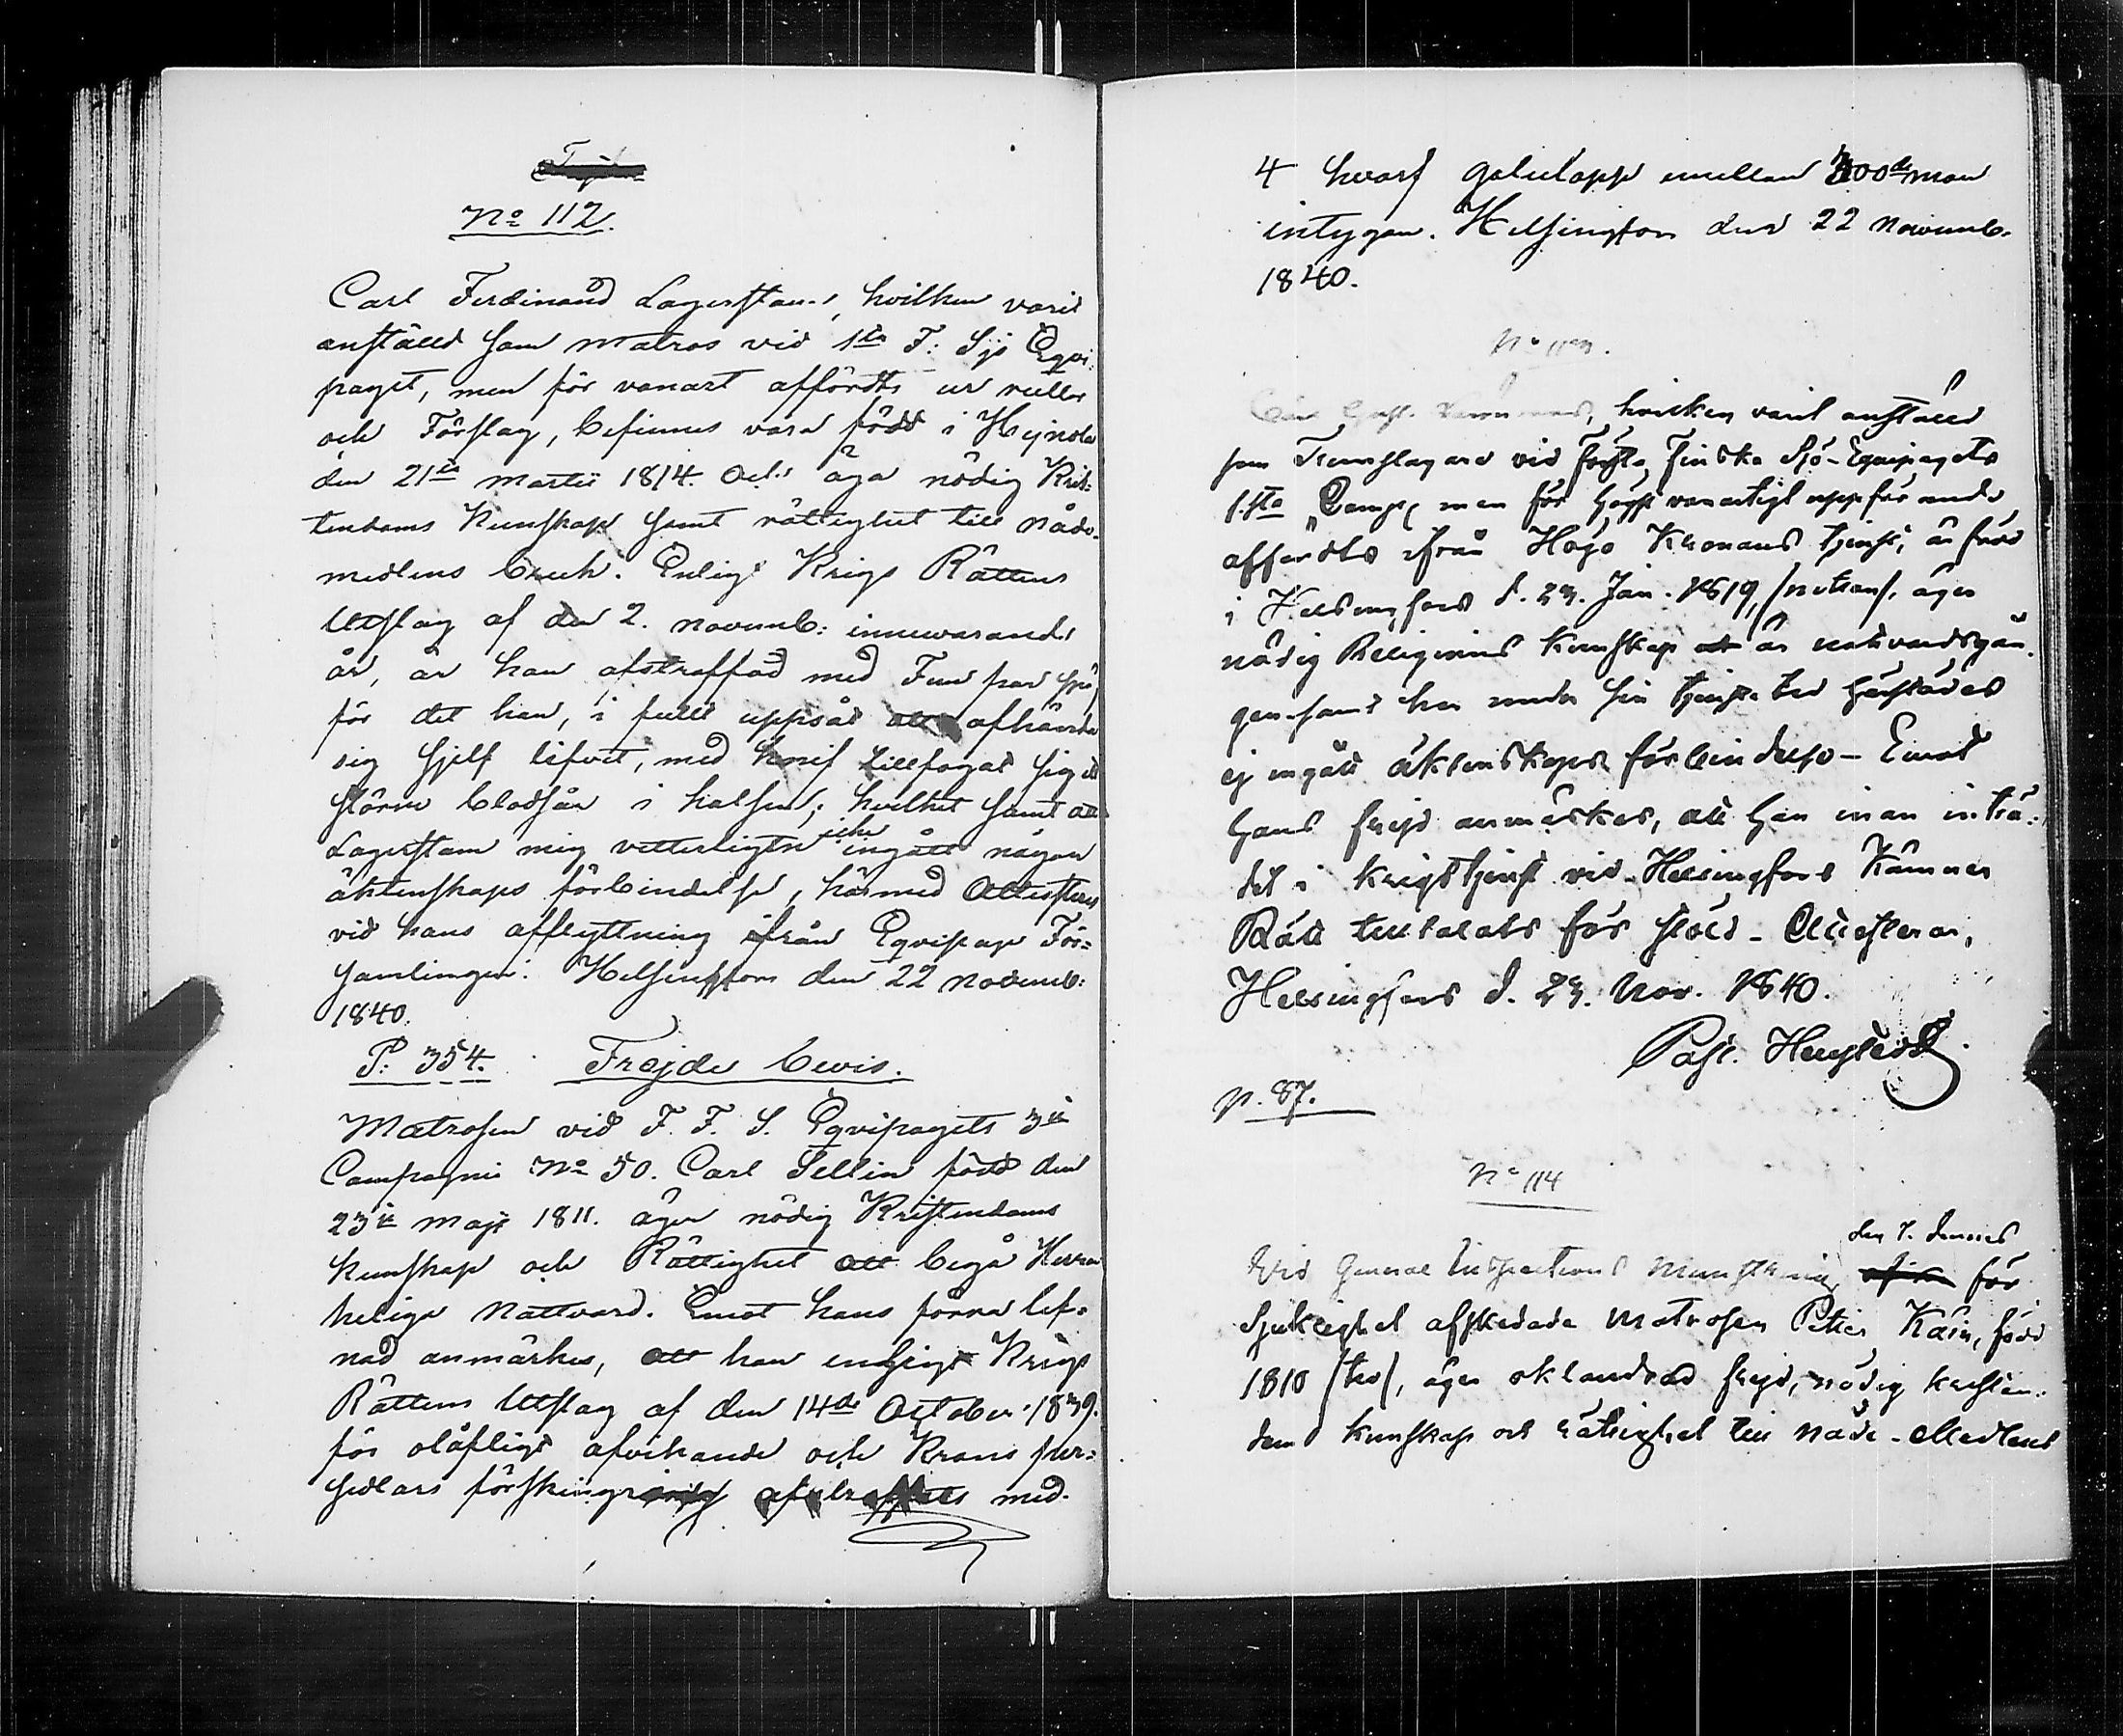 No 112.
Carl Ferdinand Lagerstam, hvilken varit
anställd som Matros vid 1sta F: Sjö Eqvi-
paget, men för vanart affördts ur rullor
och Förslag, befinnes vara född i Hejnola
den 21sta Martii 1814. och äga nödig Kris-
tendoms Kunskap samt rättighet till nåde-
medlens bruk. Enligt Krigs Rättens
Utslag af den 2. Novemb: innevarande
år, är han afstraffad med Fem par spö
för det han, i fullt uppsåt att afhända
sig sjelf lifvet, med knif tillfogat sig ett
större blodsår i halsen; hvilket samt att
Lagerstam mig vetterligen icke ingått någon
äktenskaps förbindelse, härmed Attesteras
vid hans afflyttning ifrån Eqvipage För-
samlingen. Helsingfors den 22 Novemb:
1840.
P: 354. Frejde bevis.
Matrosen vid F. F. S. Eqvipagets 3de
Compagnie No 50. Carl Sellin född den
23de Maji 1811. äger nödig Kristendoms
kunskap och Rättighet att begå Herrans
heliga Nattvard. Emot hans förra lef-
nad anmärkes, att han enligt Krigs
Rättens Utslag af den 14de October 1839.
för olåfligt afvikande och Krons per-
sedlars förskingring afstraffats med
4 hvarf gatulopp emellan 300de man
intygar. Helsingfors den 22 Novemb.
1840.
No 113.
hvilken varit anställd
som Trumslagare vid Första Finska Sjö-Equipagets
1sta Comp, men för högst vanartigt uppförande
affördts ifrån Höga Kronans tjenst, är född
i Helsingfors d. 23. Jan. 1819, äger
nödig Religions Kunskap är nattvardsgån-
gen samt har under sin tjenste tid härstädes
ej ingått äktenskaps förbindelse - Emot
hans frejd anmärkes, att han innan inträ-
det i krigstjenst vid Helsingfors Kämners
Rätt tilltalats för stöld - Attesterar,
Helsingfors d. 23. Nov. 1840.
Past.
p. 87.
No 114
den 7. dennes
Vid General Inspections Mönstring för
Sjuklighet afskedade Matrosen Petter Käin, född
1810, äger oklandrad frejd, nödig kristen-
doms kunskap och rättighet till Nåde-Medlens